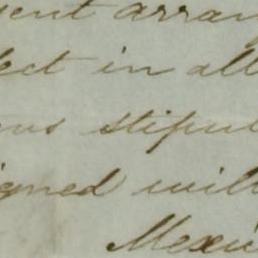 sent arran
ect in all
ous stipul
igned will
Mexic